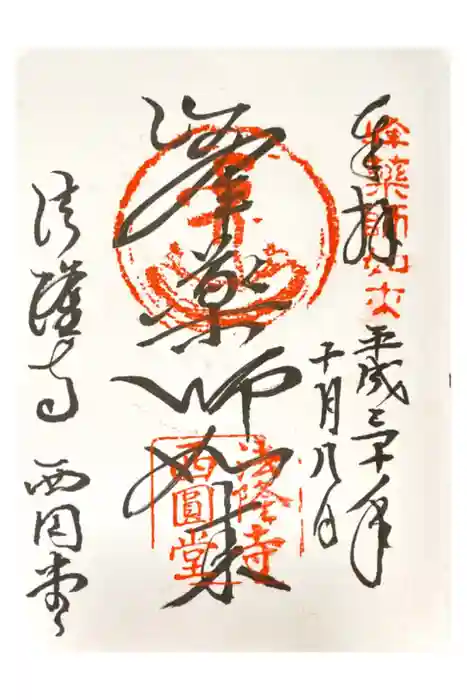 奉拝
峯薬師如来
平成三十年
十月八日
峯薬師如来
法隆寺 西円堂
法隆寺
西圓堂